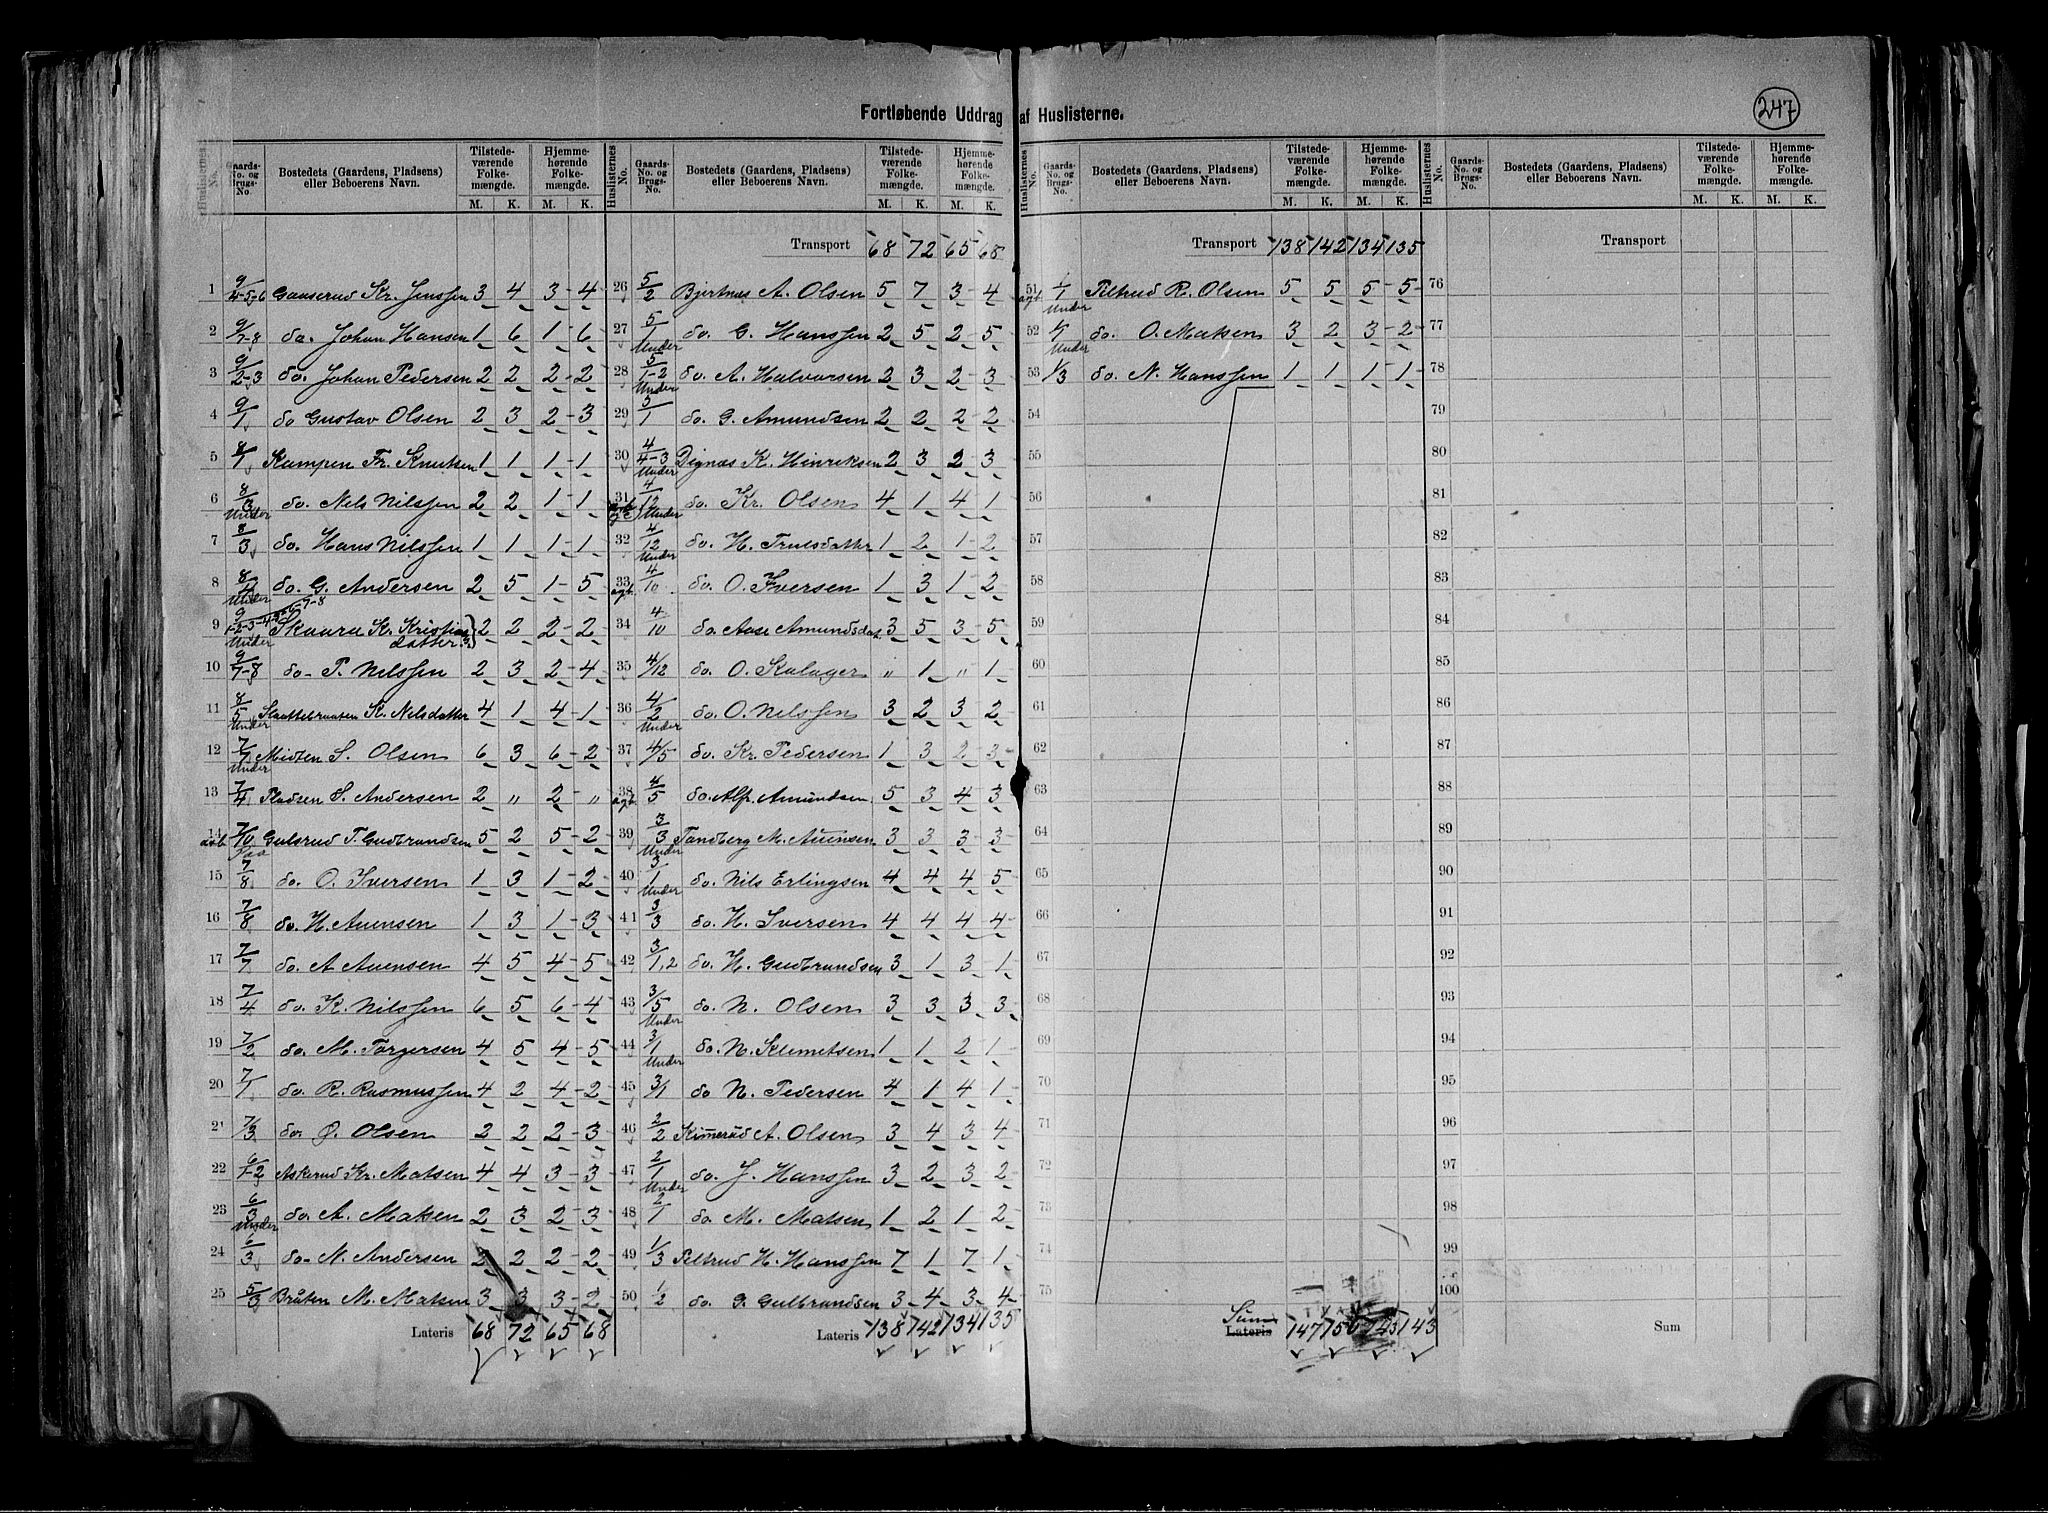 Fortløbende Uddrag af Huslisterne.
247
Huslisternes No. Gaards-No. og Brugs-No. Bostedets (Gaardens, Pladsens) eller Beboerens Navn. Tilstedeværende Folkemængde. M. K. Hjemmehørende Folkemængde. M. K.
1 9/4-5-6 Gaaserud Kr. Jenssen 3 4 3 4
2 9/7-8 do. Johan Hansen 1 6 1 6
3 9/2-3 do. Johan Pedersen 2 2 2 2
4 9/1 do Gustav Olsen 2 3 2 3
5 8/1 Kampen Th. Knutsen 1 1 1 1
6 8/3 Under do. Nels Nilssen 2 2 1 1
7 8/3 do. Hans Nilssen 1 1 1 1
8 8/4 Under do. G. Andersen 2 5 1 5
9 Under Skaara K. Kristians datter 2 2 2 2
10 9/7-8 do- P. Nilssen 2 3 2 4
11 8/5 Under Slaattebraaten K. Nelsdatter 4 1 4 1
12 7/1 Under Midten S. Olsen 6 3 6 2
13 7/4 Pladsen S. Andersen 2 " 2 "
14 7/10 Gulsrud T. Gudbrandsen 5 2 5 2
15 7/8 do. O. Iversen 1 3 1 2
16 7/8 do. H. Auensen 1 3 1 3
17 7/7 do. A Auensen 4 5 4 5
18 7/4 do. K. Nilssen 6 5 6 4
19 7/2 do. M. Torgersen 4 5 4 5
20 7/1 do. R. Rasmussen 4 2 4 2
21 7/3 do. Ø. Olsen 2 2 2 3
22 6/1-2 Askerud Kr. Matsen 4 4 3 3
23 6/3 Under do. A. Matsen 2 3 2 3
24 6/3 do- N. Andersen 2 2 2 2
25 5/3 Bråten M. Matsen 3 3 3 2
Lateris 68 72 65 68
Huslisternes No. Gaards-No. og Brugs-No. Bostedets (Gaardens, Pladsens) eller Beboerens Navn. Tilstedeværende Folkemængde. M. K. Hjemmehørende Folkemængde. M. K.
Transport 68 72 65 68
26 5/2 Bjertnæs A. Olsen 5 7 3 4
27 5/1 Under do. G. Hanssen 2 5 2 5
28 5/1-2 Under do. A. Halvorsen 2 3 2 3
29 5/1 do. G. Amundsen 2 2 2 2
30 4/4-3 Under Dignæs K. Hinriksen 2 3 2 3
31 4/12 Under do. Kr. Olsen 4 1 4 1
32 4/12 Under do. H. Trulsdatter 1 2 1 2
33 4/10 do. O. Iversen 1 3 1 2
34 4/10 do. Aase Amundsdat. 3 5 3 5
35 4/12 do. O. Kalager " 1 " 1
36 4/2 Under do. O. Nilssen 3 2 3 2
37 4/5 do. Kr. Pedersen 1 3 2 3
38 4/5 do. Alf. Amundsen 5 3 4 3
39 3/3 Under Tandberg M. Auensen 3 3 3 3
40 3/1 Under do. Nils Erlingsen 4 4 4 5
41 3/3 do. H. Iversen 4 4 4 4
42 3/1,2 do. H. Gudbrandsen 3 1 3 1
43 3/5 Under do. N. Olsen 3 3 3 3
44 3/1 Under do. N. Klemetsen 1 1 2 1
45 3/1 do N. Pedersen 4 1 4 1
46 2/2 Kimerud A. Olsen 3 4 3 4
47 2/1 Under do. J. Hanssen 3 2 3 2
48 2/1 do. M. Matsen 1 2 1 2
49 1/3 Peltrud H. Hanssen 7 1 7 1
50 1/2 do. G. Gulbrandsen 3 4 3 4
Lateris 138 142 134 135
Huslisternes No. Gaards-No. og Brugs-No. Bostedets (Gaardens, Pladsens) eller Beboerens Navn. Tilstedeværende Folkemængde. M. K. Hjemmehørende Folkemængde. M. K.
Transport 138 142 134 135
51 1/1 Under Peltrud R. Olsen 5 5 5 5
52 1/1 Under do. O. Matsen 3 2 3 2
53 1/3 do. N. Hanssen 1 1 1 1
54
55
56
57
58
59
60
61
62
63
64
65
66
67
68
69
70
71
72
73
74
75
Sum
Lateris 147 150 143 143
Huslisternes No. Gaards-No. og Brugs-No. Bostedets (Gaardens, Pladsens) eller Beboerens Navn. Tilstedeværende Folkemængde. M. K. Hjemmehørende Folkemængde. M. K.
Transport
76
77
78
79
80
81
82
83
84
85
86
87
88
89
90
91
92
93
94
95
96
97
98
99
100
Sum